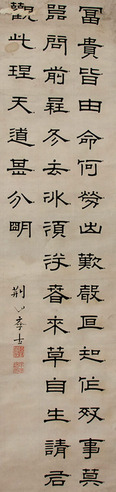 富貴皆由命何勞出歎聲亘知作好事莫
要問前程冬去冰須泮春來草自生請君
觀此理天道甚分明
荆山李士